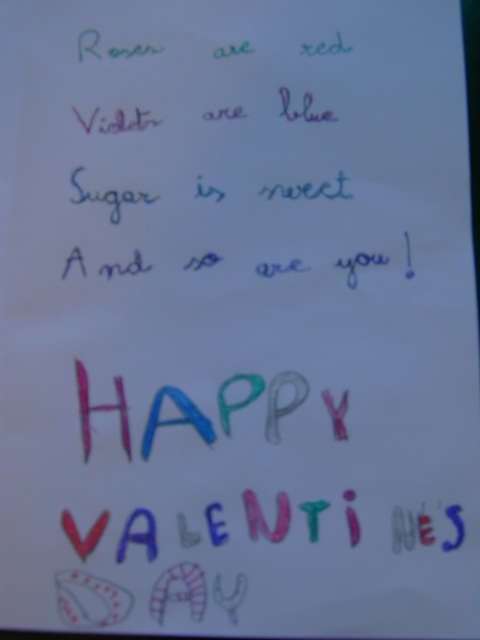 Roses are red
Violets are blue
Sugar is sweet
And so are you!
HAPPY
VALENTiNE'S
DAY